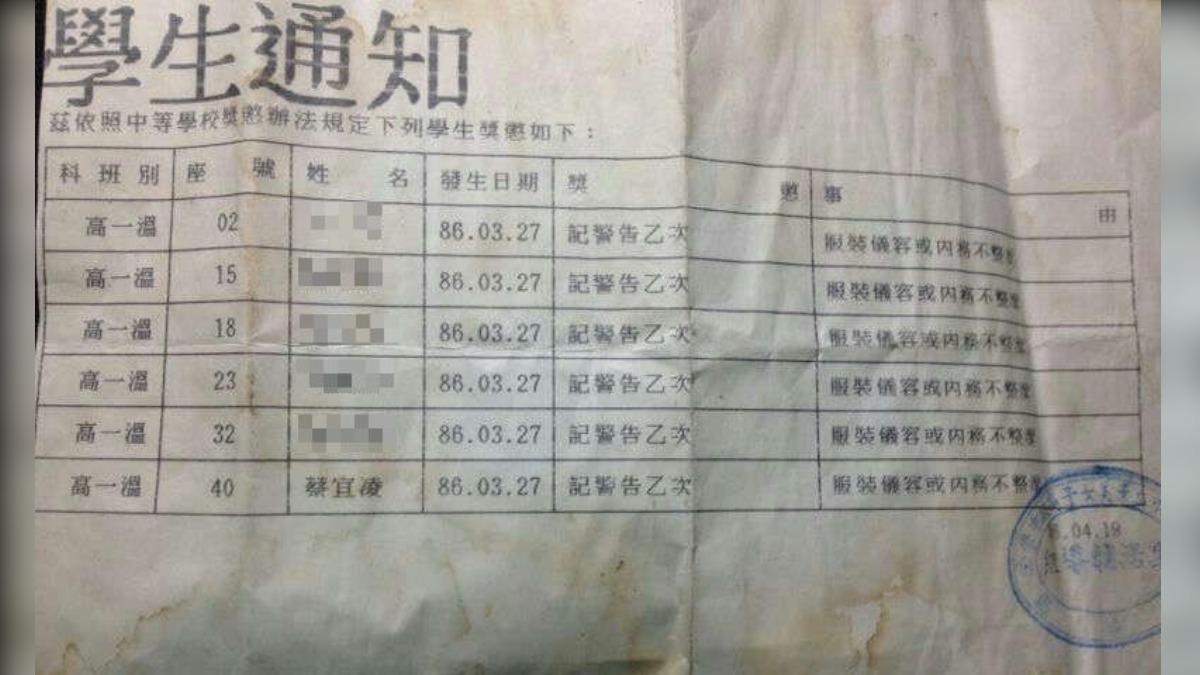 學生通知
茲依照中等學校獎懲辦法規定下列學生獎懲如下：
科班別 座號 姓名 發生日期 獎懲 事由
高一溫 02 86.03.27 記警告乙次 服裝儀容或內務不整
高一溫 15 86.03.27 記警告乙次 服裝儀容或內務不整
高一溫 18 86.03.27 記警告乙次 服裝儀容或內務不整
高一溫 23 86.03.27 記警告乙次 服裝儀容或內務不整
高一溫 32 86.03.27 記警告乙次 服裝儀容或內務不整
高一溫 40 蔡宜凌 86.03.27 記警告乙次 服裝儀容或內務不整
.04.18